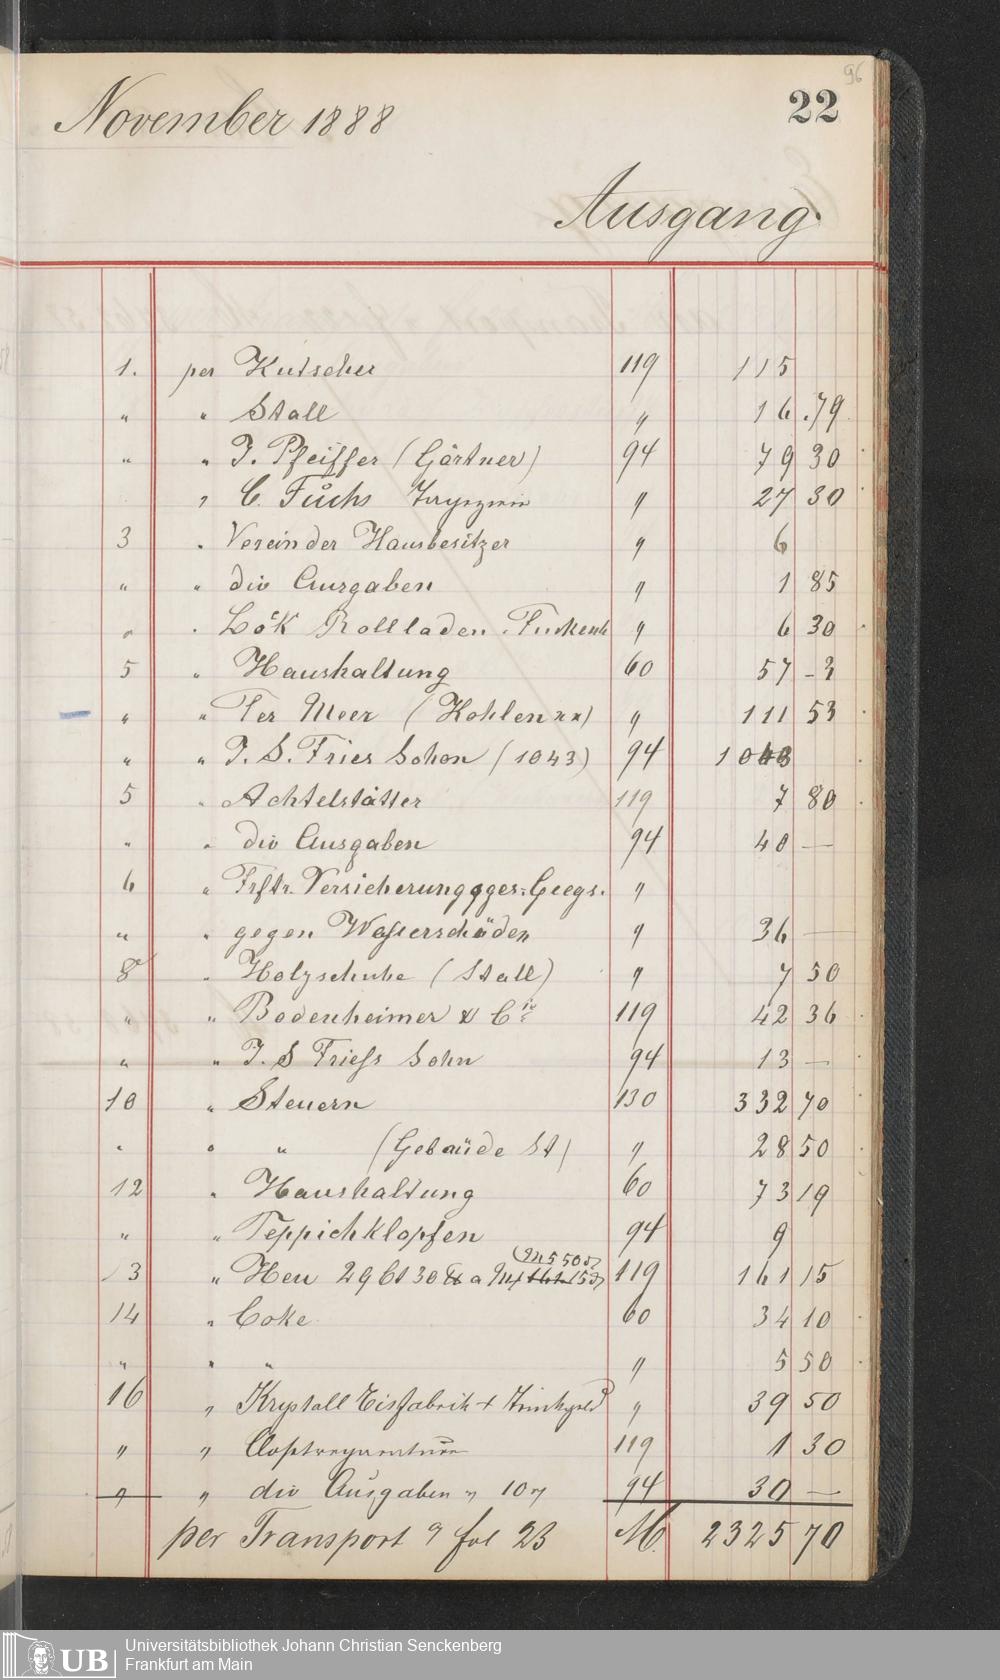 96
22
November 1888
Ausgang
1. per Kutscher 119 115
" " Stall " 16 .79
" " J. Pfeiffer (Gärtner) 94 79 30
" C. Fuchs " 27 30
3 " Verein der Hausbesitzer " 6
" " div Ausgaben " 1 85
" " Rollladen " 6 30
5 " Haushaltung 60 57 - 2
" " Ter Meer (Kohlen xx) " 111 53
" " J. S. Fries Sohon (1043) 94 1043
5 " Achtelstätter 119 7 80
" " div Ausgaben 94 40 —
6 " Frftr. Versicherungsges. "
" " gegen Wasserschäden " 36 —
8 " Holzschuhe (Stall) " 7 50
" " Bodenheimer & Cie 119 42 36
" " J. S Friess Sohn 94 13 —
10 " Steuern 130 332 70
" " " (Gebäude St) " 28 50
12 " Haushaltung 60 73 19
" " Teppichklopfen 94 9
(M 5 50
13 " Heu 29 30 a 119 161 15
14 " Coke 60 34 10
" " " " 5 50
16 " Krystall Eisfabrik + Trinkgeld " 39 50
" " 119 1 30
" " div Ausgaben " 10 " 94 30 —
per Transport a fol 23 M. 2325 70
UB
Universitätsbibliothek Johann Christian Senckenberg
Frankfurt am Main